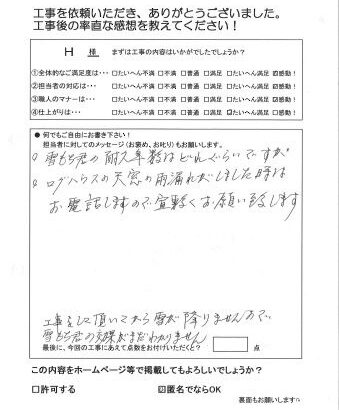 工事を依頼いただき、ありがとうございました。
工事後の率直な感想を教えてください！
H 様 まずは工事の内容はいかがでしたでしょうか？
①全体的なご満足度は… □たいへん不満 □不満 □普通 □満足 □たいへん満足 ☑感動！
②担当者の対応は… □たいへん不満 □不満 □普通 □満足 □たいへん満足 ☑感動！
③職人のマナーは… □たいへん不満 □不満 □普通 □満足 □たいへん満足 ☑感動！
④仕上がりは… □たいへん不満 □不満 □普通 □満足 ☑たいへん満足 □感動！
● 何でもご自由にお書き下さい！
担当者に対してのメッセージ（お褒め、お叱り）もお願いします。
雪もち君の耐久年数はどれぐらいですか
ログハウスの天窓の雨漏れがしました時は
お電話しますので宜敷くお願い致します
工事をして頂いてから雪が降りませんので
雪もち君の効果がまだわかりません
最後に、今回の工事にあえて点数をお付けいただくと？ 点
この内容をホームページ等で掲載してもよろしいでしょうか？
□許可する ☒匿名でならOK
裏面もお願いします